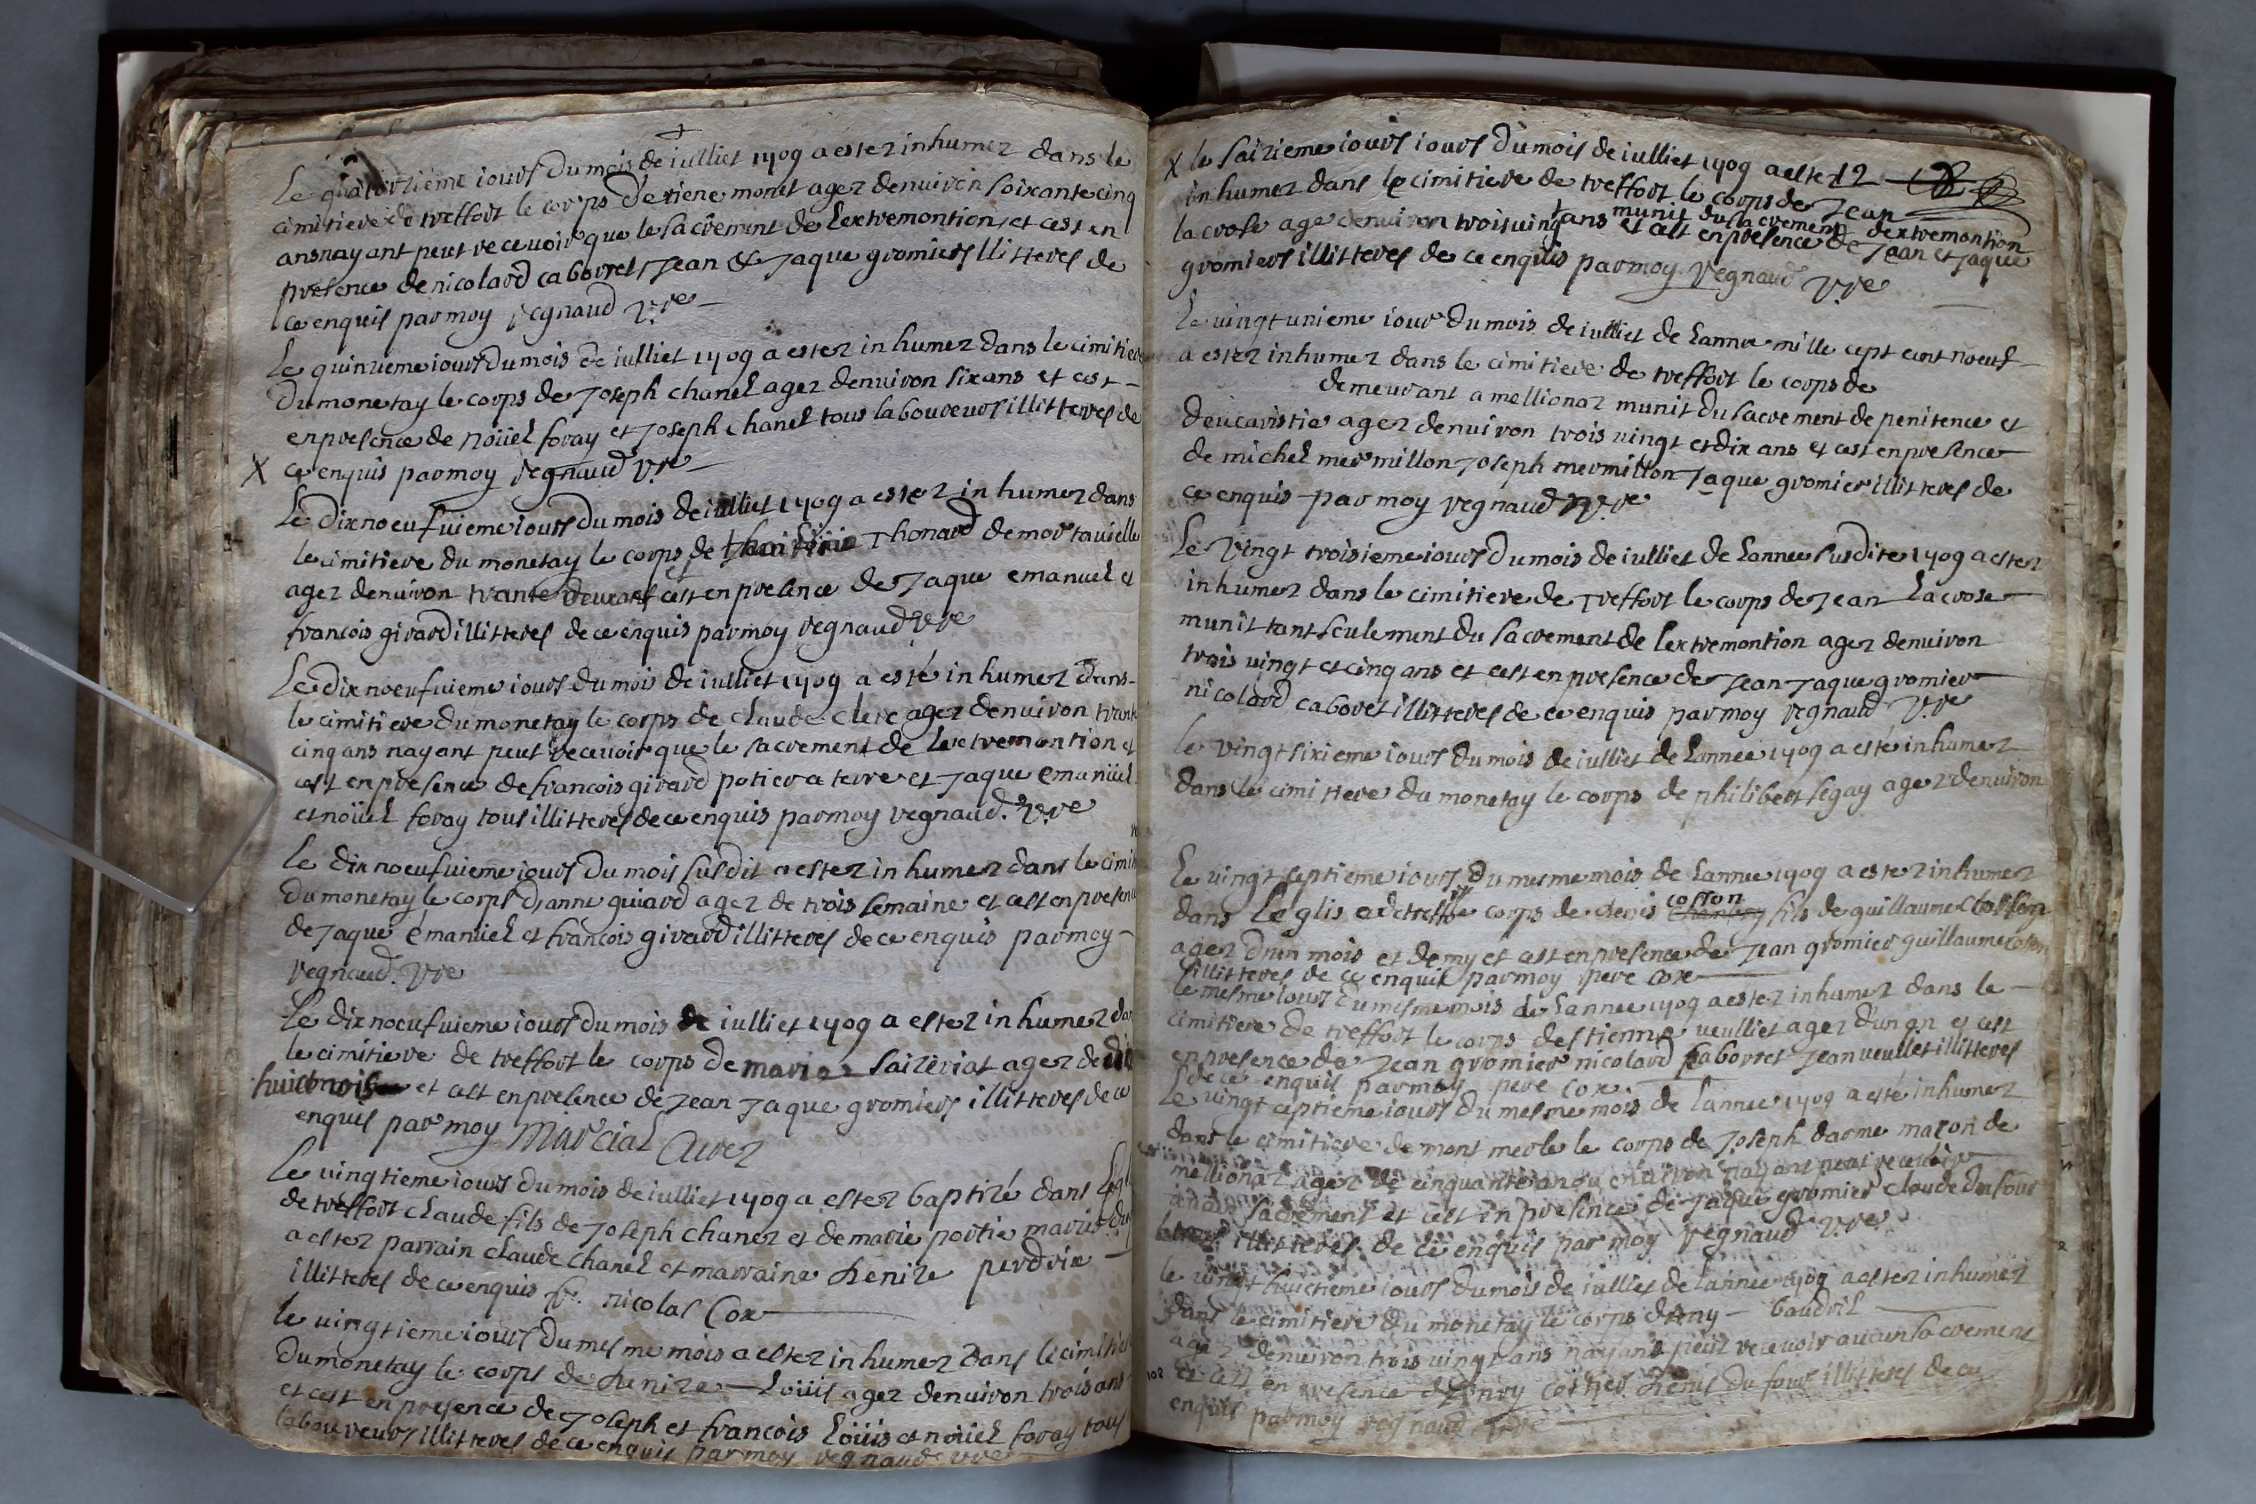 Le quatorzieme iours du mois de iulliet 1709 a ester inhumer dans le
cimitiere de treffort le corps detiene monet ager denuiron soixante cinq
ans nayant peut recevoir que le sacrement de Lextremontion et cest en
presence de nicolard caborret Jean & Jaque gromiers Illitteres de
ce enquis par moy regnaud v.re
Le quinzieme iours du mois de iulliet 1709 a ester inhumer dans le cimitiere
du monetay le corps de Joseph chanel ager denuiron six ans et cest
en presence de noüel foray et Joseph chanel tous laboureurs illitteres de
X ce enquis par moy regnaud v.re
Le dixnoeufuieme iours du mois de iulliet 1709 a ester inhumer dans
le cimitiere du monetay le corps de Thonard de mortauielle
ager denuiron trante deux ans et cest en presence de Jaque emanuel et
francois girard illitteres de ce enquis par moy regnaud v.re
Le dixnoeufuieme iours du mois de iulliet 1709 a esté inhumer dans
le cimitiere du monetay le corps de claude clere ager denuiron trante
cinq ans nayant peut recevoir que le sacrement de Lextremontion et
cest en presence de francois girard potier a terre et Jaque emanüel
et noüel foray tous illitteres de ce enquis par moy regnaud. v.re
Le dixnoeufuieme iours du mois susdit a ester inhumer dans le cimit
du monetay le corps d'anne guiard ager de trois semaine et cest en presence
de Jaque emanüel et francois girard illitteres de ce enquis par moy
regnaud. v.re
Le dixnoeufuieme iours du mois de iulliet 1709 a ester inhumer dans
le cimitiere de treffort le corps de marie saizeriat ager de
huict mois et cest en presence de Jean Jaque gromiers illitteres de ce
enquis par moy Marcial Curez
Le uingtieme iours du mois de iulliet 1709 a ester baptizé dans Legl
de treffort claude fils de Joseph chanez et de marie portie mariez
a ester parrain claude chanel et marraine denize perdrix
illitteres de ce enquis fr. nicolas Cox
le uingtieme iours du mesme mois a ester inhumer dans le cimitier
du monetay le corps de denize Loüis ager denuiron trois ans
et cest en presence de Joseph et francois Loüis et noüel foray tous
laboureurs illitteres de ce enquis par moy regnaud v.re
X le saizieme iours iours du mois de iulliet 1709 a ester 12
inhumer dans le cimitiere de treffort le corps de Jean
munit du sacrement dextremontion
lacrose age denuiron trois uingt ans et cest en presence de Jean et Jaque
gromiers illitteres de ce enquis par moy regnaud v.re
Le vingt unieme iour du mois de iulliet de Lannee mille cept cent noeuf
a ester inhumer dans le cimitiere de treffort le corps de
demeurant a mellionaz munit du sacrement de penitence et
deucaristie ager denuiron trois uingt et dix ans et cest en presence
de michel mermillon Joseph mermillon Jaque gromier illitteres de
ce enquis par moy regnaud v.re
Le vingt troisieme iours du mois de iulliet de Lannee susdite 1709 a ester
inhumer dans le cimitiere de Treffort le corps de Jean Lacrose
munit tant seulement du sacrement de lextremontion ager denuiron
trois uingt et cinq ans et cest en presence de Jean Jaque gromier
nicolard caboret illitteres de ce enquis par moy regnaud v.re
le vingt sixieme iours du mois de iulliet de Lannee 1709 a esté inhumer
dans le cimittere du monetay le corps de philibert segay ager denuiron
Le vingt septieme iours du mesme mois de Lannee 1709 a ester inhumer
dans Leglis corps de denis cosson fils de guillaume Cosson
ager d'un mois et demy et cest en presence de Jean gromier guillaume coson
illitteres de ce enquis par moy pere Cox
le mesme iours du mesme mois de Lannee 1709 a ester inhumer dans le
cimitiere de treffort le corps destienne ueulliet ager d'un an et cest
en presence de Jean gromier nicolard caborret Jean ueullet illitteres
de ce enquis par moy pere Cox
Le vingt ceptieme iours du mesme mois de lannee 1709 a esté inhumer
dans le cimitiere de mont merle le corps de Joseph darme maçon de
mellionaz ager de cinquante an ou enuiron nayant peut recevoir
aucun sacrement et cest en presence de Jaque gromier claude dufour
illitteres de ce enquis par moy regnaud v.re
le uingt huictieme iours du mois de iulliet de Lannee 1709 a ester inhumer
dans le cimitiere du monetay le corps d'Any baudril
ager denuiron trois uingt ans nayant peut recevoir aucun sacrement
102 et cest en presence denis du four illitteres de ce
enquis par moy regnaud v.re